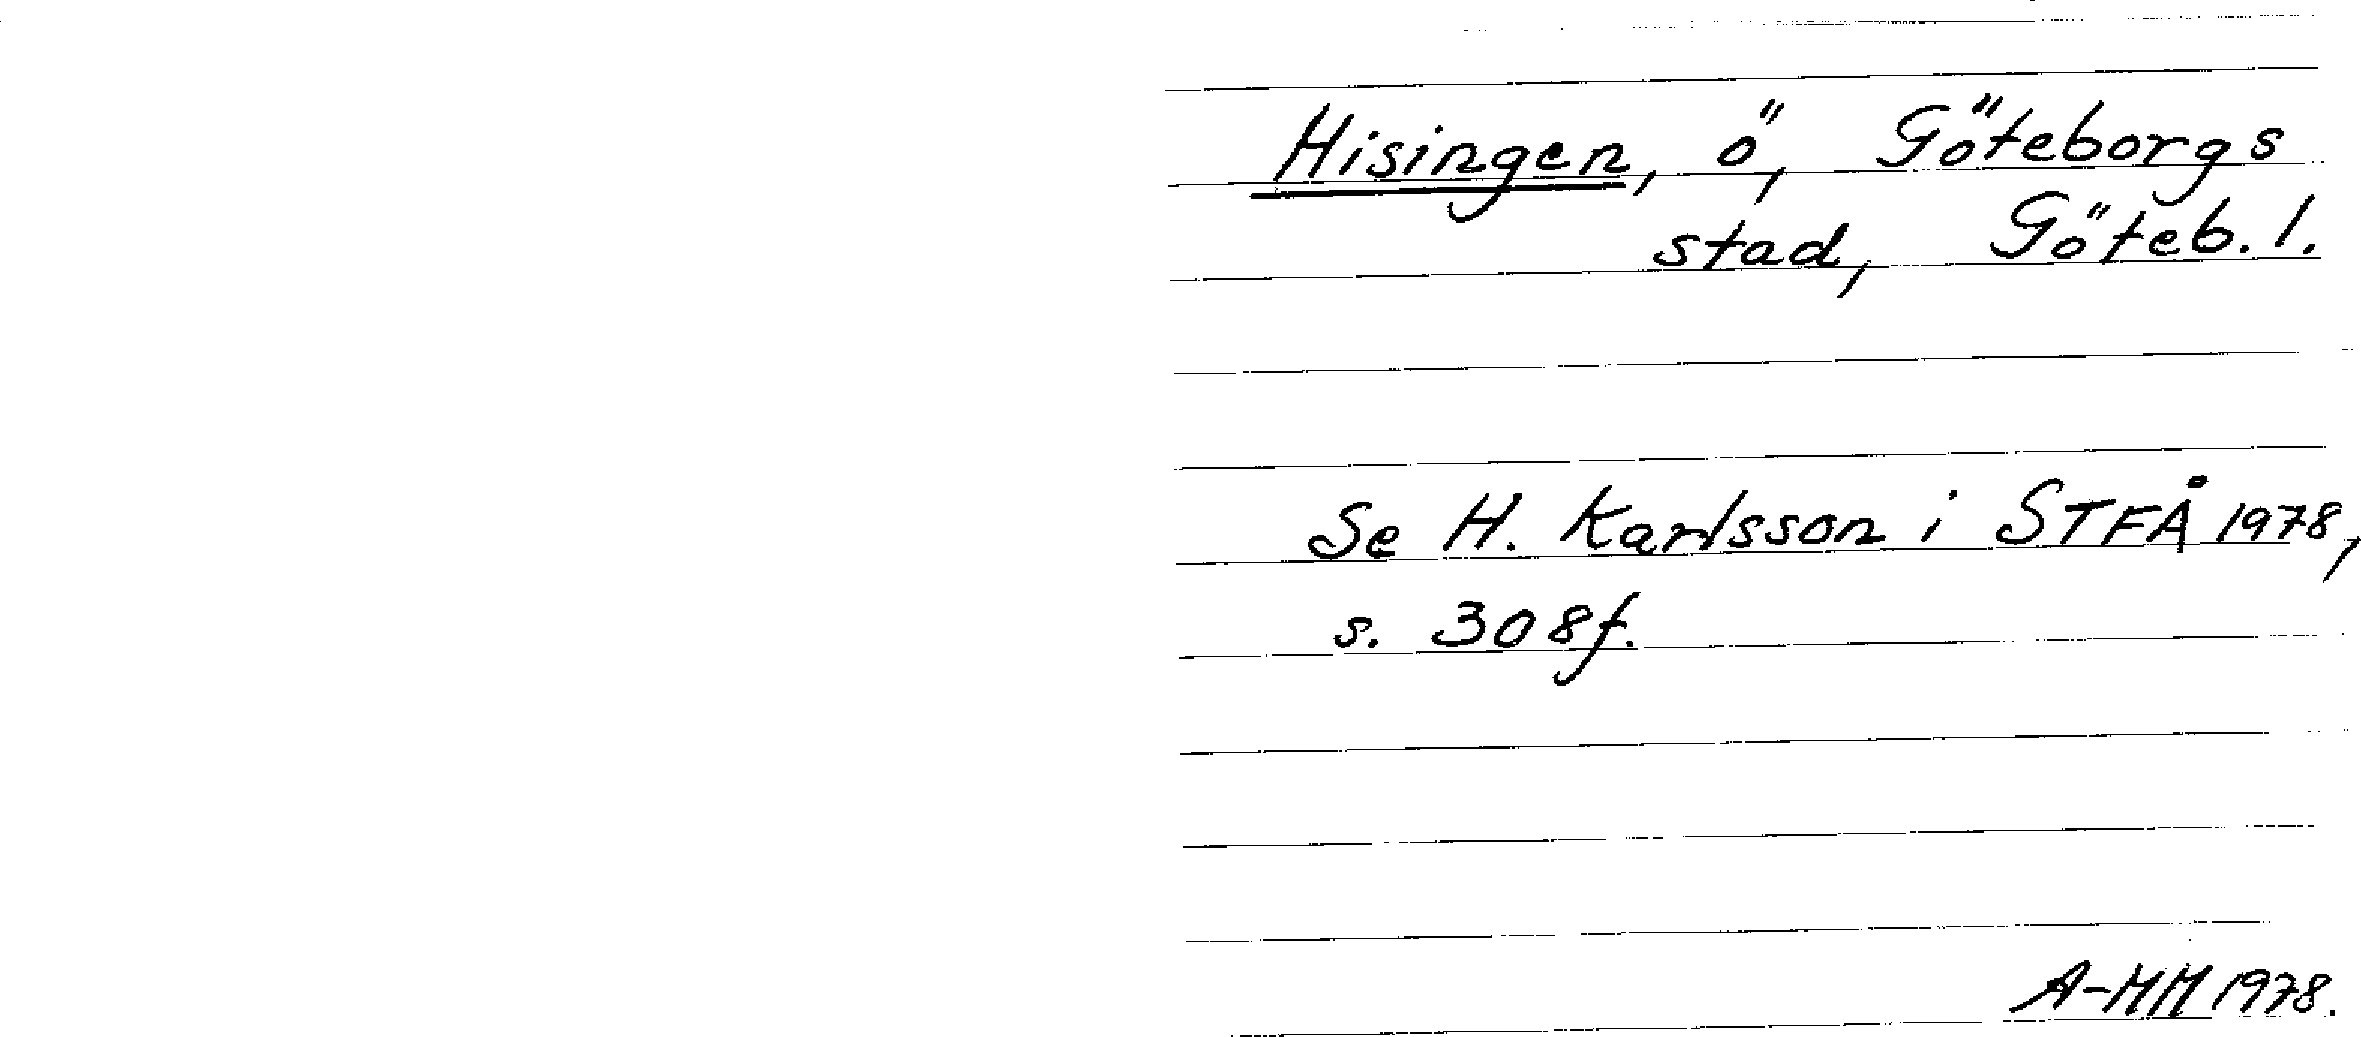 Hisingen, ö, Göteborgs
stad, Göteb. l.
Se H. Karlsson i STFÅ 1978,
s. 308f.
A-MM 1978.